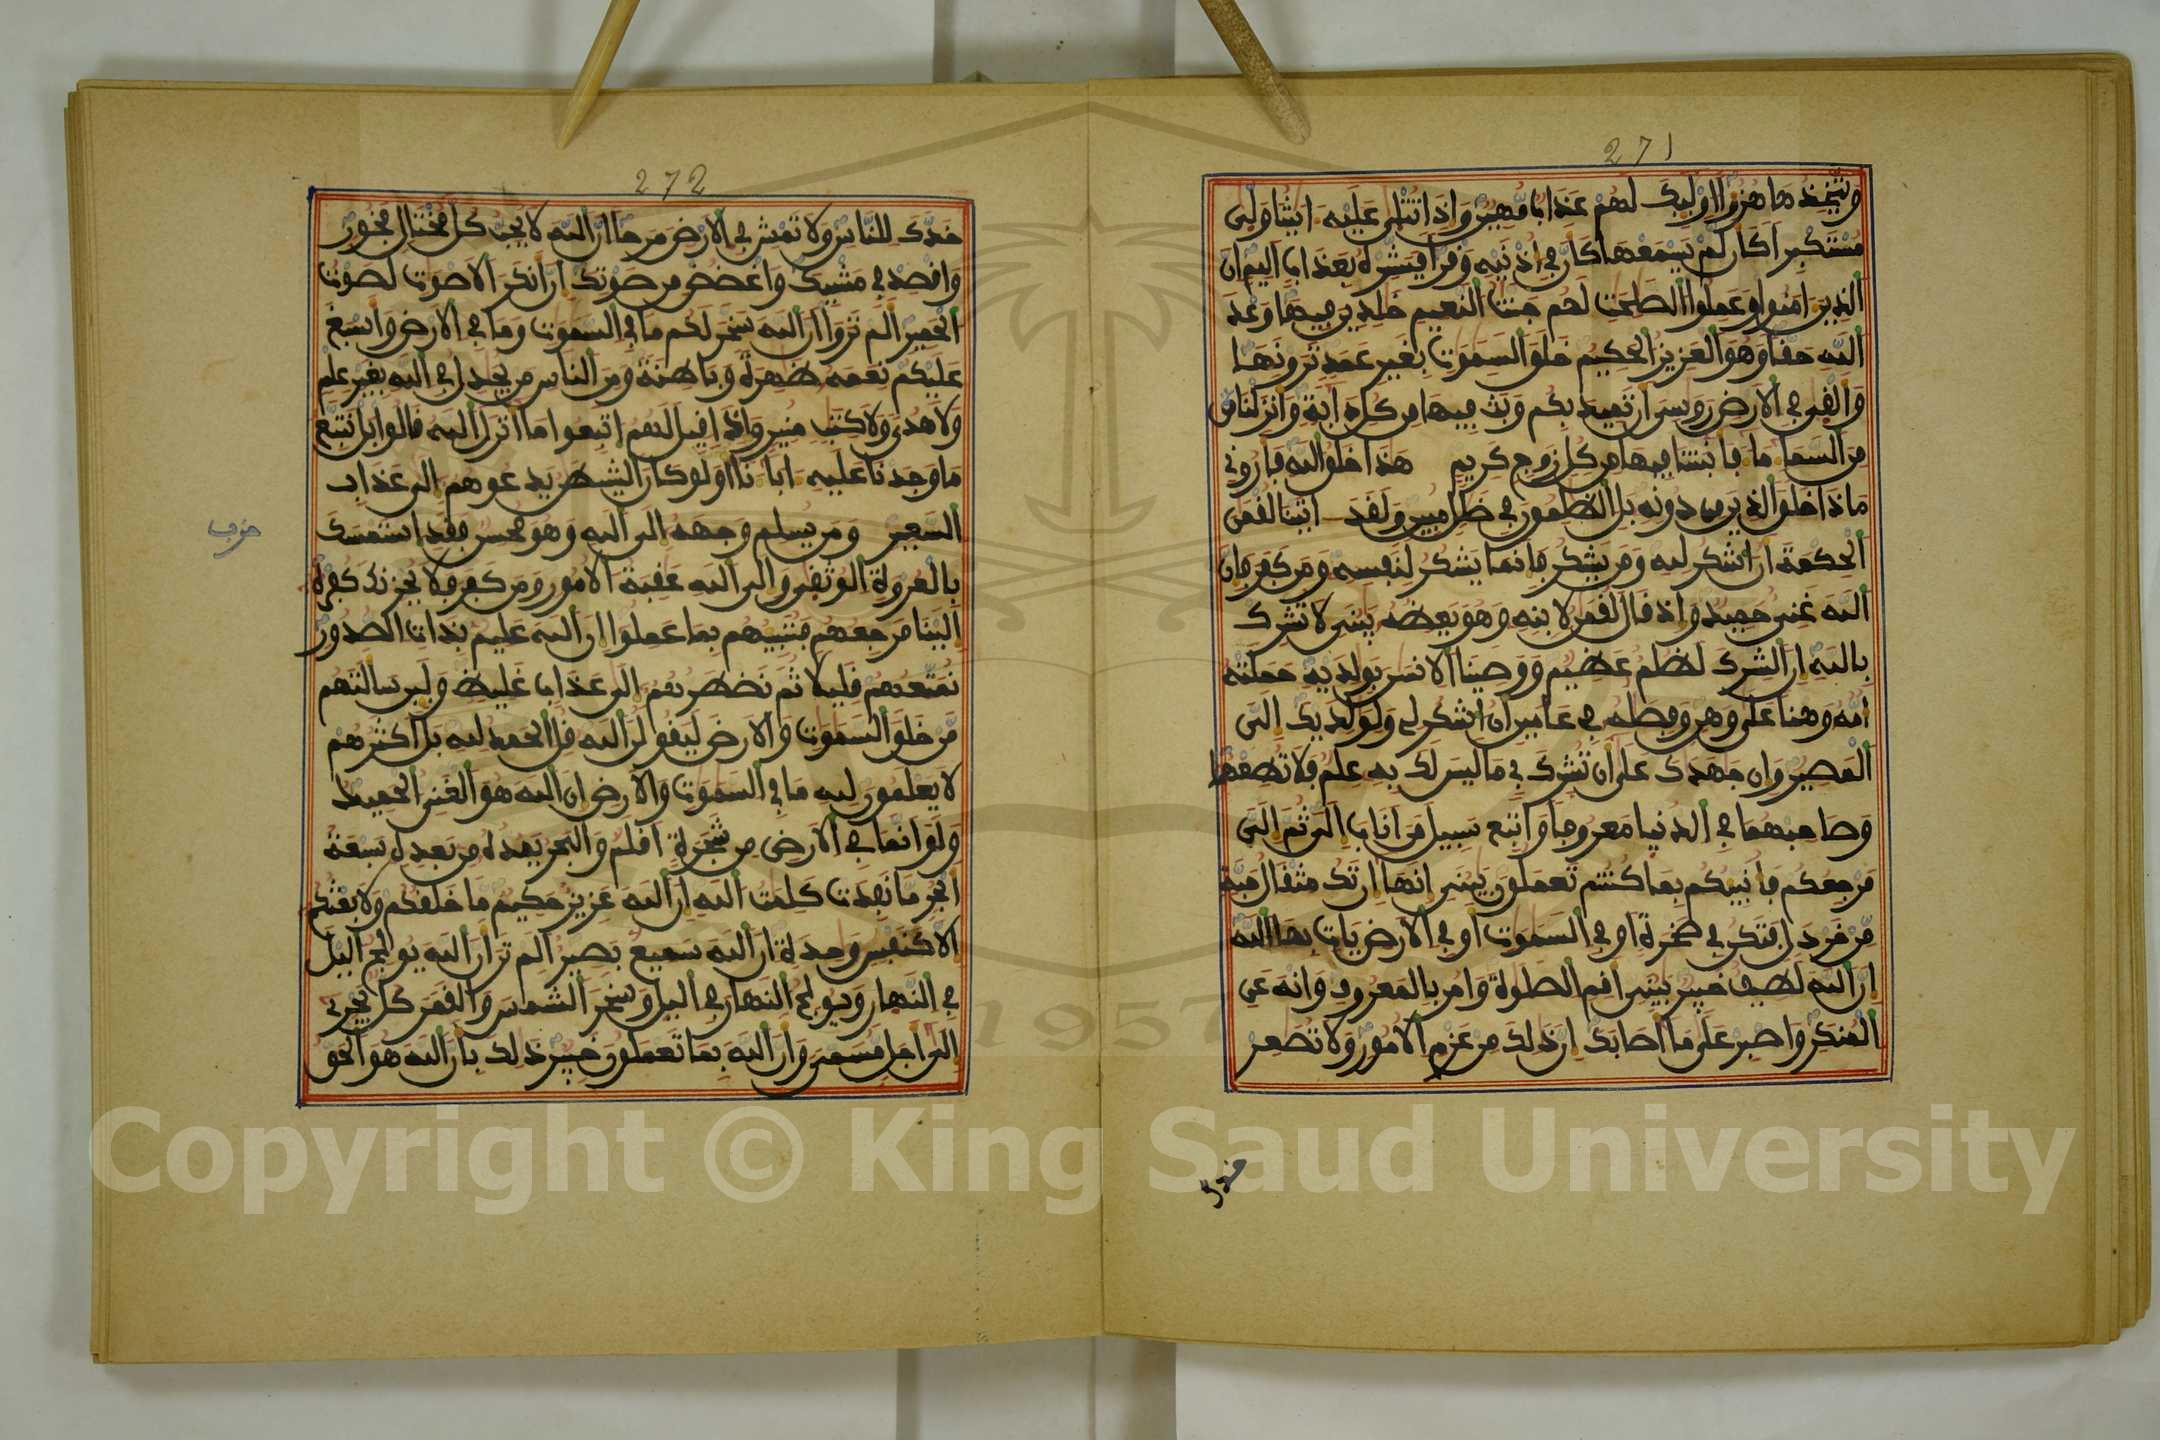 271
ويتخذها هزؤا اوليك لهم عذاب مهين واذا تتلى عليه ايتنا ولى
مستكبرا كان لم يسمعها كان في اذنيه وقرا فبشره بعذاب اليم ان
الذين امنوا وعملوا الصلحت لهم جنت النعيم خلدين فيها وعد
الله حقا وهو العزيز الحكيم خلق السموت بغير عمد ترونها
والقى في الارض روسي ان تميد بكم وبث فيها من كل دابة وانزلنا من
من السما ما فانبتنا فيها من كل زوج كريم هذا خلق الله فاروني
ماذا خلق الذين من دونه بل الظلمون في ضلل مبين ولقد اتينا لقمن
الحكمة ان اشكر لله ومن يشكر فانما يشكر لنفسه ومن كفر فان
الله غني حميد واذ قال لقمن لابنه وهو يعظه يبني لا تشرك
بالله ان الشرك لظلم عظيم ووصينا الانسن بولديه حملته
امه وهنا على وهن وفصله في عامين ان اشكر لي ولولديك الي
المصير وان جهدك على ان تشرك بي ما ليس لك به علم فلا تطعهما
وصاحبهما في الدنيا معروفا واتبع سبيل من اناب الي ثم الي
مرجعكم فانبيكم بما كنتم تعملون يبني انها ان تك مثقال حبة
من خردل فتكن في صخرة او في السموت او في الارض يات بها الله
ان الله لطيف خبير يبني اقم الصلوة وامر بالمعروف وانه عن
المنكر واصبر على ما اصابك ان ذلك من عزم الامور ولا تصعر
خدك
272
خدك للناس ولا تمش في الارض مرحا ان الله لا يحب كل مختال فخور
واقصد في مشيك واغضض من صوتك ان انكر الاصوت لصوت
الحمير الم تروا ان الله سخر لكم ما في السموت وما في الارض واسبغ
عليكم نعمه ظهرة وباطنة ومن الناس من يجدل في الله بغير علم
ولا هدى ولا كتب منير واذا قيل لهم اتبعوا ما انزل الله قالوا بل نتبع
ما وجدنا عليه ابانا اولو كان الشيطن يدعوهم الى عذاب
السعير ومن يسلم وجهه الى الله وهو محسن فقد استمسك
حزب
بالعروة الوثقى والى الله عقبة الامور ومن كفر فلا يحزنك كفره
الينا مرجعهم فننبيهم بما عملوا ان الله عليم بذات الصدور
نمتعهم قليلا ثم نضطرهم الى عذاب غليظ ولين سالتهم
من خلق السموت والارض ليقولن الله قل الحمد لله بل اكثرهم
لا يعلمون لله ما في السموت والارض ان الله هو الغني الحميد
ولو انما في الارض من شجرة اقلم والبحر يمده من بعده سبعة
ابحر ما نفدت كلمت الله ان الله عزيز حكيم ما خلقكم ولا بعثكم
الا كنفس وحدة ان الله سميع بصير الم تر ان الله يولج اليل
في النهار ويولج النهار في اليل وسخر الشمس والقمر كل يجري
الى اجل مسمى وان الله بما تعملون خبير ذلك بان الله هو الحق
Copyright © King Saud University
1957